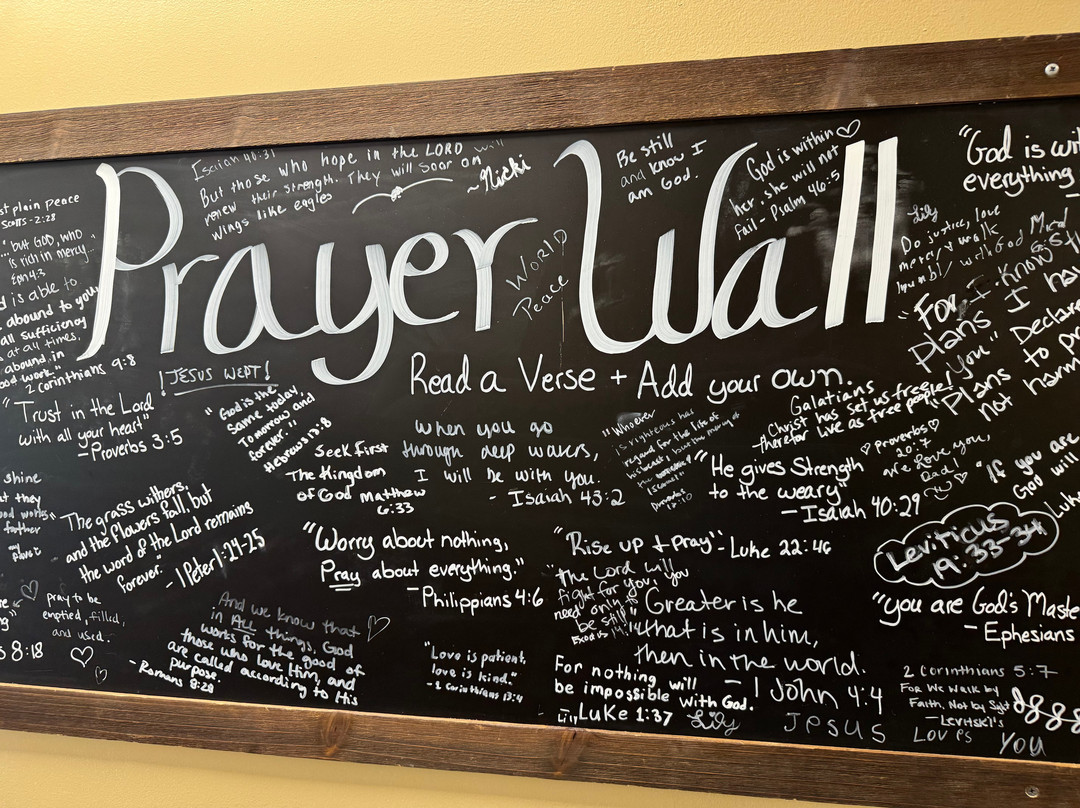 Prayer Wall
Read a Verse + Add your own.
st plain peace
Scotts - 2:28
"but GOD, who
is rich in mercy...
Eph 4:3
d is able to
abound to you
all sufficiency
s at all times,
abound in
ood work."
2 Corinthians 9:8
Isaiah 40:31
But those who hope in the LORD will
renew their strength. They will soar on
wings like eagles
~Nicki
World
Peace
Be still
and know I
am God.
God is within
her, she will not
fail - Psalm 46:5
"God is wit
everything
Lily
Do justice, love
mercy, walk
humbly w/ God
"For I Know
plans I hav
you"
Declare
Plans to pr
not harm
! JESUS WEPT !
"Trust in the Lord
with all your heart"
- Proverbs 3:5
"God is the
Same today,
Tomorrow and
forever."
Hebrews 13:8
Seek first
The Kingdom
of God Matthew
6:33
When you go
through deep waters,
I will be with you.
- Isaiah 43:2
"Whoever
is righteous has
regard for the life of
his beast, but the mercy of
Galatians
Christ has set us free!
therefor live as free people!
"He gives Strength
to the weary"
- Isaiah 40:29
Proverbs
20:7
we Love you,
Dad!
"If you are
God will
Luke
Leviticus
19:33-34
shine
at they
good works
father
The grass withers,
and the flowers fall, but
the word of the Lord remains
forever."
- 1 Peter 1:24-25
"Worry about nothing,
Pray about everything."
- Philippians 4:6
"Rise up + pray" - Luke 22:46
"the Lord will
fight for you, you
need only to
be still"
Exodus 14:14
"Greater is he
that is in him,
then in the world.
- 1 John 4:4
"you are God's Maste
- Ephesians
pray to be
emptied, filled,
and used.
s 8:18
And we know that
in ALL things, God
works for the good of
those who love Him, and
are called according to His
purpose.
- Romans 8:28
"Love is patient,
love is kind."
- 1 Corinthians 13:4
For nothing will
be impossible with God.
Luke 1:37
Lily
JESUS
Loves
You
2 Corinthians 5:7
For We Walk by
Faith, Not by Sight